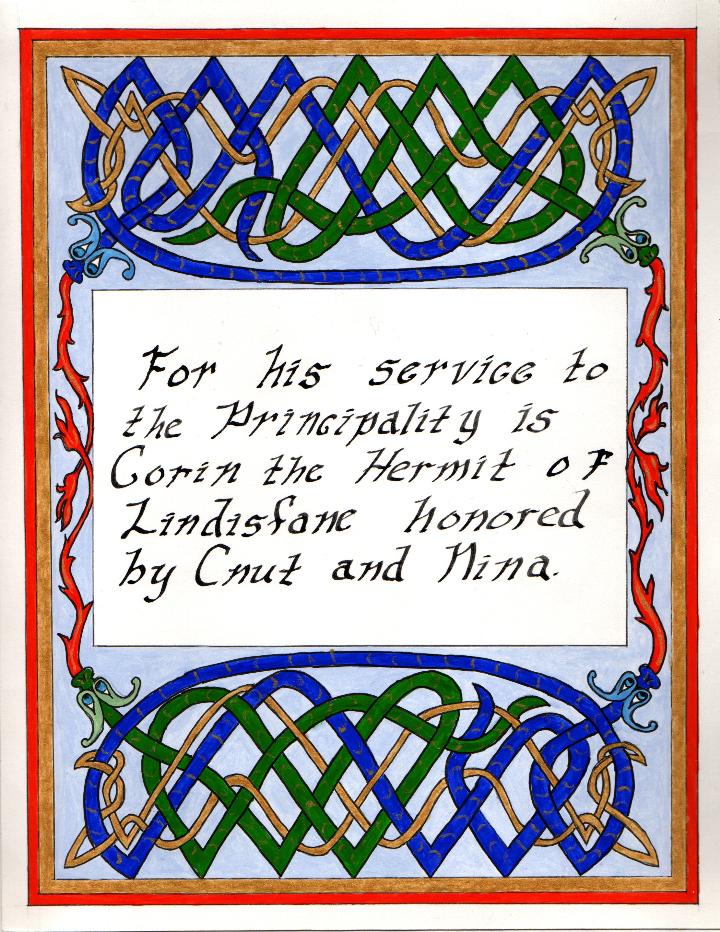 For his service to
the Principality is
Corin the Hermit of
Lindisfane honored
by Cnut and Nina.